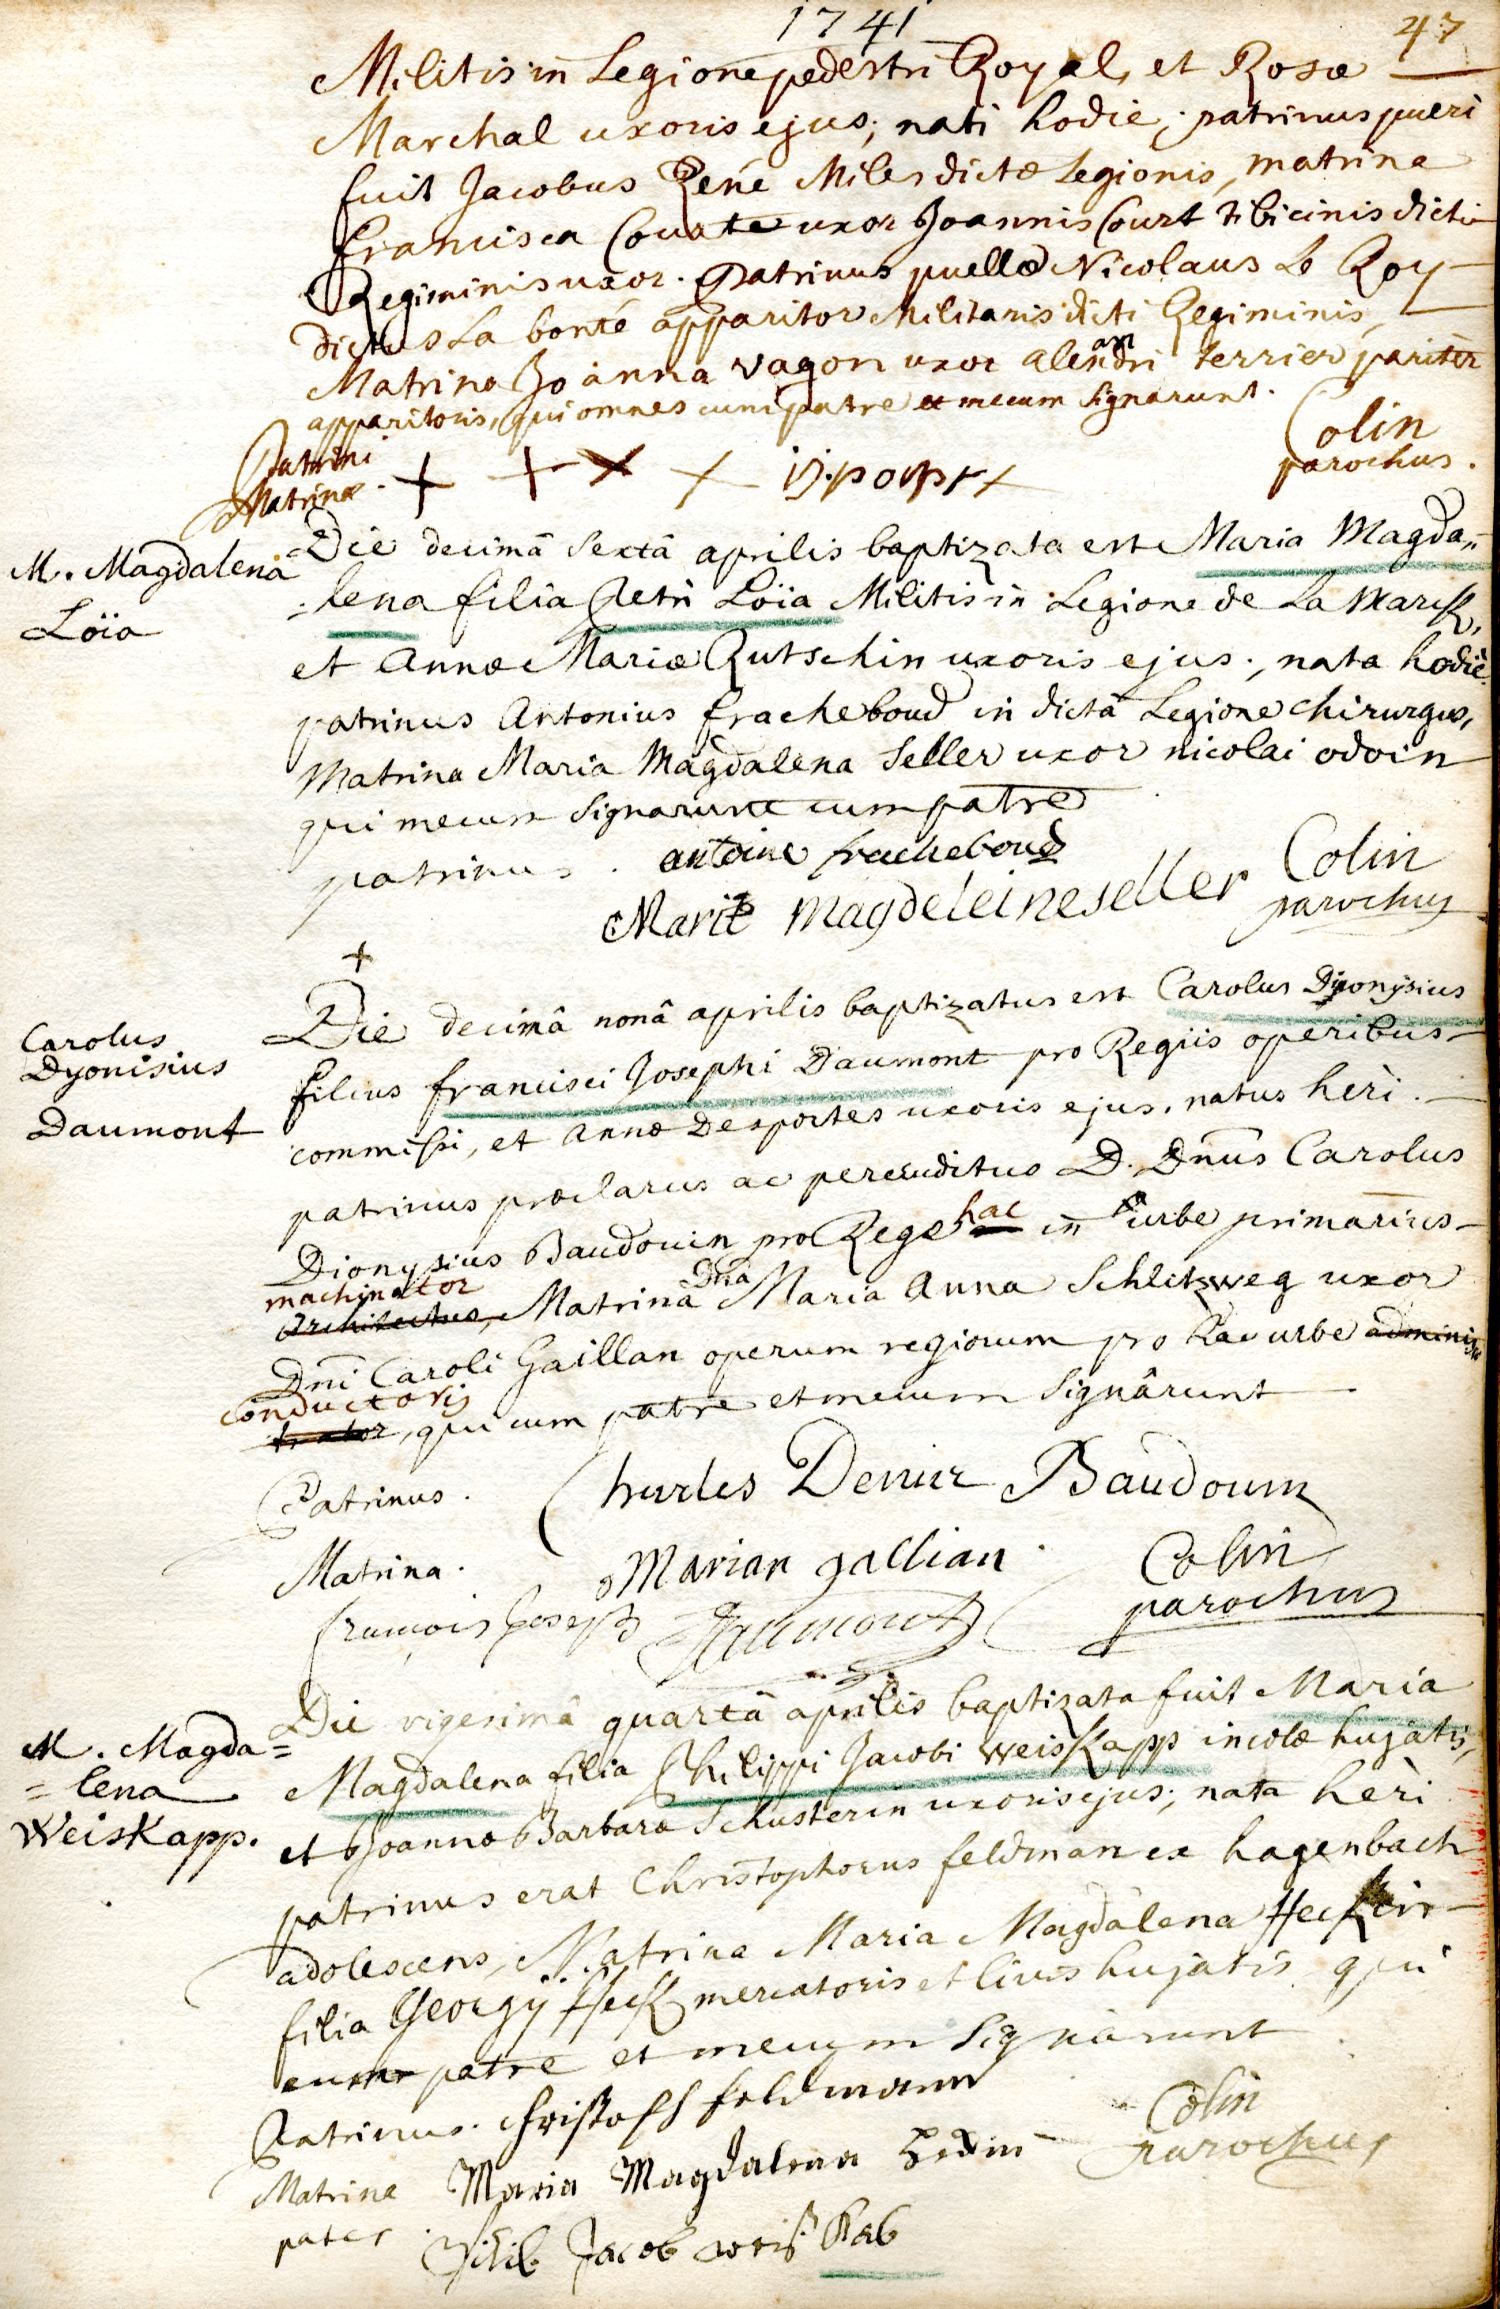 1741
47
Militis in Legione pedestri Royal, et Rosæ
Marchal uxoris ejus; nati hodie; patrinus pueri
fuit Jacobus René Miles dictæ Legionis, matrina
francisca Courte uxor Joannis Court tibicinis dicti
Regiminis uxor. Patrinus puellæ Nicolaus Le Roy
dictus La bonté apparitor Militaris dicti Regiminis,
Matrina Joanna vagon uxor alexandri terrier pariter
apparitoris, qui omnes cum patre et mecum signarunt.
Colin
parochus.
Patrini
Matrinæ. + + × ×
M. Magdalena
Loïa
Die decimâ sextâ aprilis baptizata est Maria Magda=
=lena filia Petri Loïa Militis in Legione de La Marck,
et Annæ Mariæ Rutschin uxoris ejus; nata hodiè
patrinus Antonius fracheboud in dictâ Legione chirurgus,
Matrina Maria Magdalena Seller uxor nicolai odoin
qui mecum signarunt cum patre
patrinus. antoine fracheboud
Marie Magdeleine seller
Colin
parochus
+
Carolus
Dyonisius
Daumont
Die decimâ nonâ aprilis baptizatus est Carolus Dyonÿsius
filius francisci Josephi Daumont pro Regiis operibus
commissi, et Annæ Desportes uxoris ejus, natus heri.
patrinus præclarus ac pereruditus D. Dnus Carolus
Dionysius Baudouin pro Rege hac in urbe primarius
machinator
Architectus, Matrina Dna Maria Anna Schletzweg uxor
Dni Caroli Gaillan operum regiorum pro hac urbe adminis
conductoris
trator, qui cum patre et mecum signârunt
Patrinus. Charles Denis Baudouin
Matrina. Marian gallian
françois Joseph Daumont
Colin
parochus
M. Magda=
=lena
Weiskapp.
Die vigesimâ quartâ aprilis baptizata fuit Maria
Magdalena filia Philippi Jacobi Weiskapp incolæ hujatis,
et Joannæ Barbaræ Schusterin uxoris ejus; nata heri
patrinus erat Christophorus feldman ex hagenbach
adolescens, Matrina Maria Magdalena Heckin
filia Georgÿ Heck mercatoris et civis hujatis qui
cum patre et mecum signârunt
Patrinus. Christoph feldmann
Matrina Maria Magdalena Heckin
pater. Philib Jacob weiß Kab
Colin
parochus